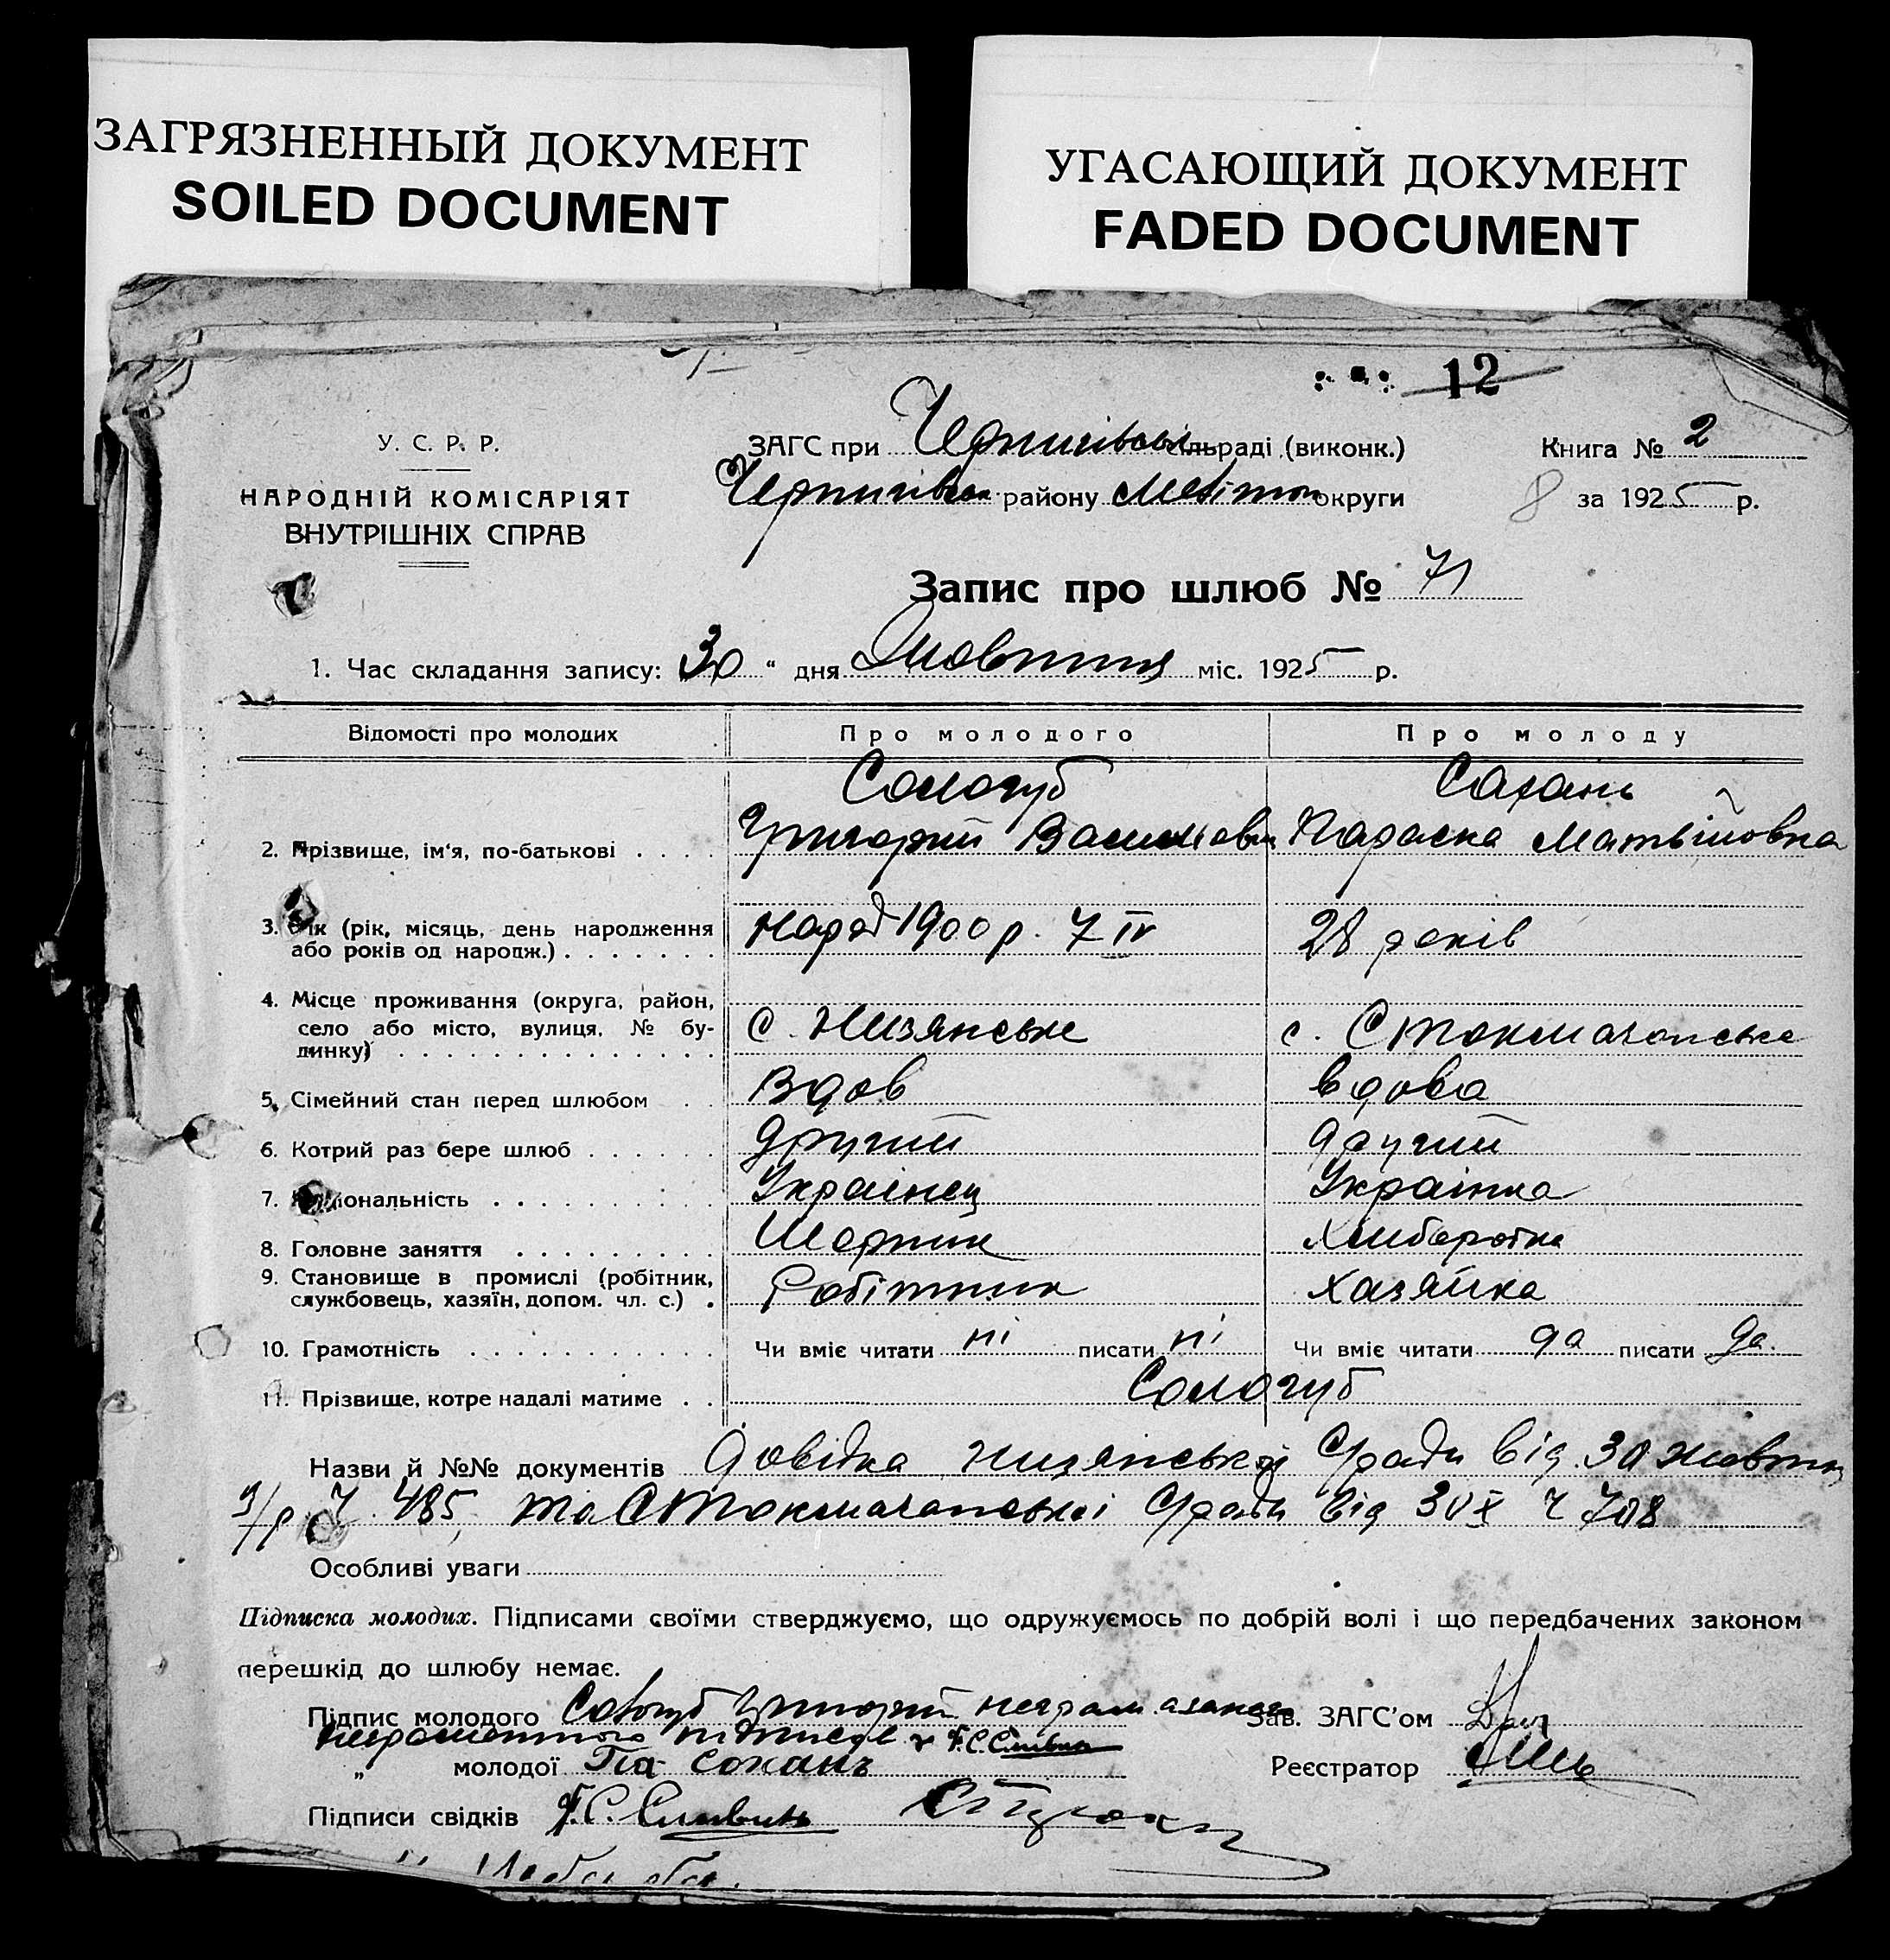 ЗАГРЯЗНЕННЫЙ ДОКУМЕНТ
SOILED DOCUMENT
УГАСАЮЩИЙ ДОКУМЕНТ
FADED DOCUMENT
12
У. С. Р. Р.
НАРОДНІЙ КОМІСАРІЯТ
ВНУТРІШНІХ СПРАВ
ЗАГС при Чернигівські сільраді (виконк.)
Чернигівськ району Мелітоп округи
Книга № 2
8 за 1925 р.
Запис про шлюб № 71
1. Час складання запису: 30 " дня Жовтня міс. 1925 р.
Відомості про молодих Про молодого Про молоду
Сологуб Сахань
2. Прізвище, ім'я, по-батькові Григорий Васильови Параска Матвійовна
3. Вік (рік, місяць, день народження
або років од народж.) народ 1900 р. 7 IV 28 років
4. Місце проживання (округа, район,
село або місто, вулиця, № бу-
динку) с. Низянське с. Стокмачанське
5. Сімейний стан перед шлюбом Вдов вдова
6. Котрий раз бере шлюб другий другий
7. Національність Українец Українка
8. Головне заняття Шорник Хліборобка
9. Становище в промислі (робітник,
службовець, хазяїн, допом. чл. с.) Робітник хазяйка
10. Грамотність Чи вміє читати ні писати ні Чи вміє читати да писати да.
11. Прізвище, котре надалі матиме Сологуб
Назви й №№ документів довідка Низянської С/ради від 30 жовтня
ц/р Ч. 485, та Стокмачанської С/ради від 30 X ч 708
Особливі уваги
Підписка молодих. Підписами своїми стверджуємо, що одружуємось по добрій волі і що передбачених законом
перешкід до шлюбу немає.
Підпис молодого Сологуб Григорий неграм а за него
неграмотного підписав
Зав. ЗАГС'ом
" молодої Па Сохань
Реєстратор
Підписи свідків